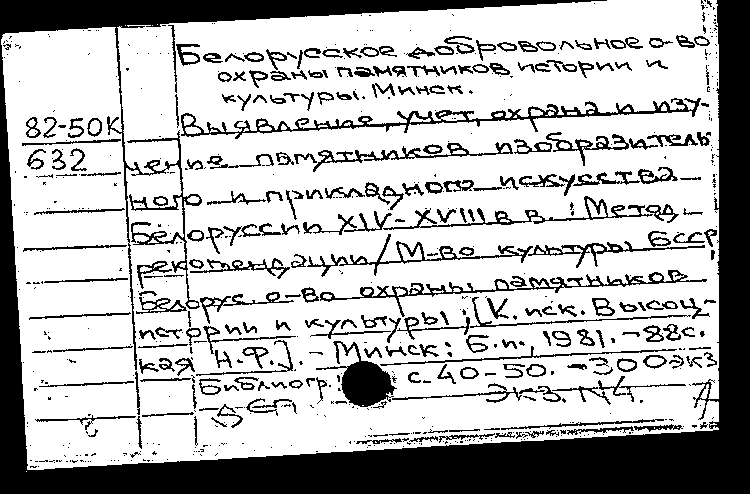 Белорусское добровольное о-во
охраны памятников истории и
культуры. Минск.
82-50К Выявление, учет, охрана и изу-
632 чение памятников изобразитель
ного и прикладного искусства
Белоруссии XIV-XVIII в в. : Метод.
рекомендации/М-во культуры БССР,
Белорус. о-во охраны памятников
истории и культуры ; [К. иск. Высоц-
кая Н.Ф.]. - Минск : Б.и., 1981. - 88с.
Библиогр.: с. 40-50. - 300экз
ЭКЗ. N4.